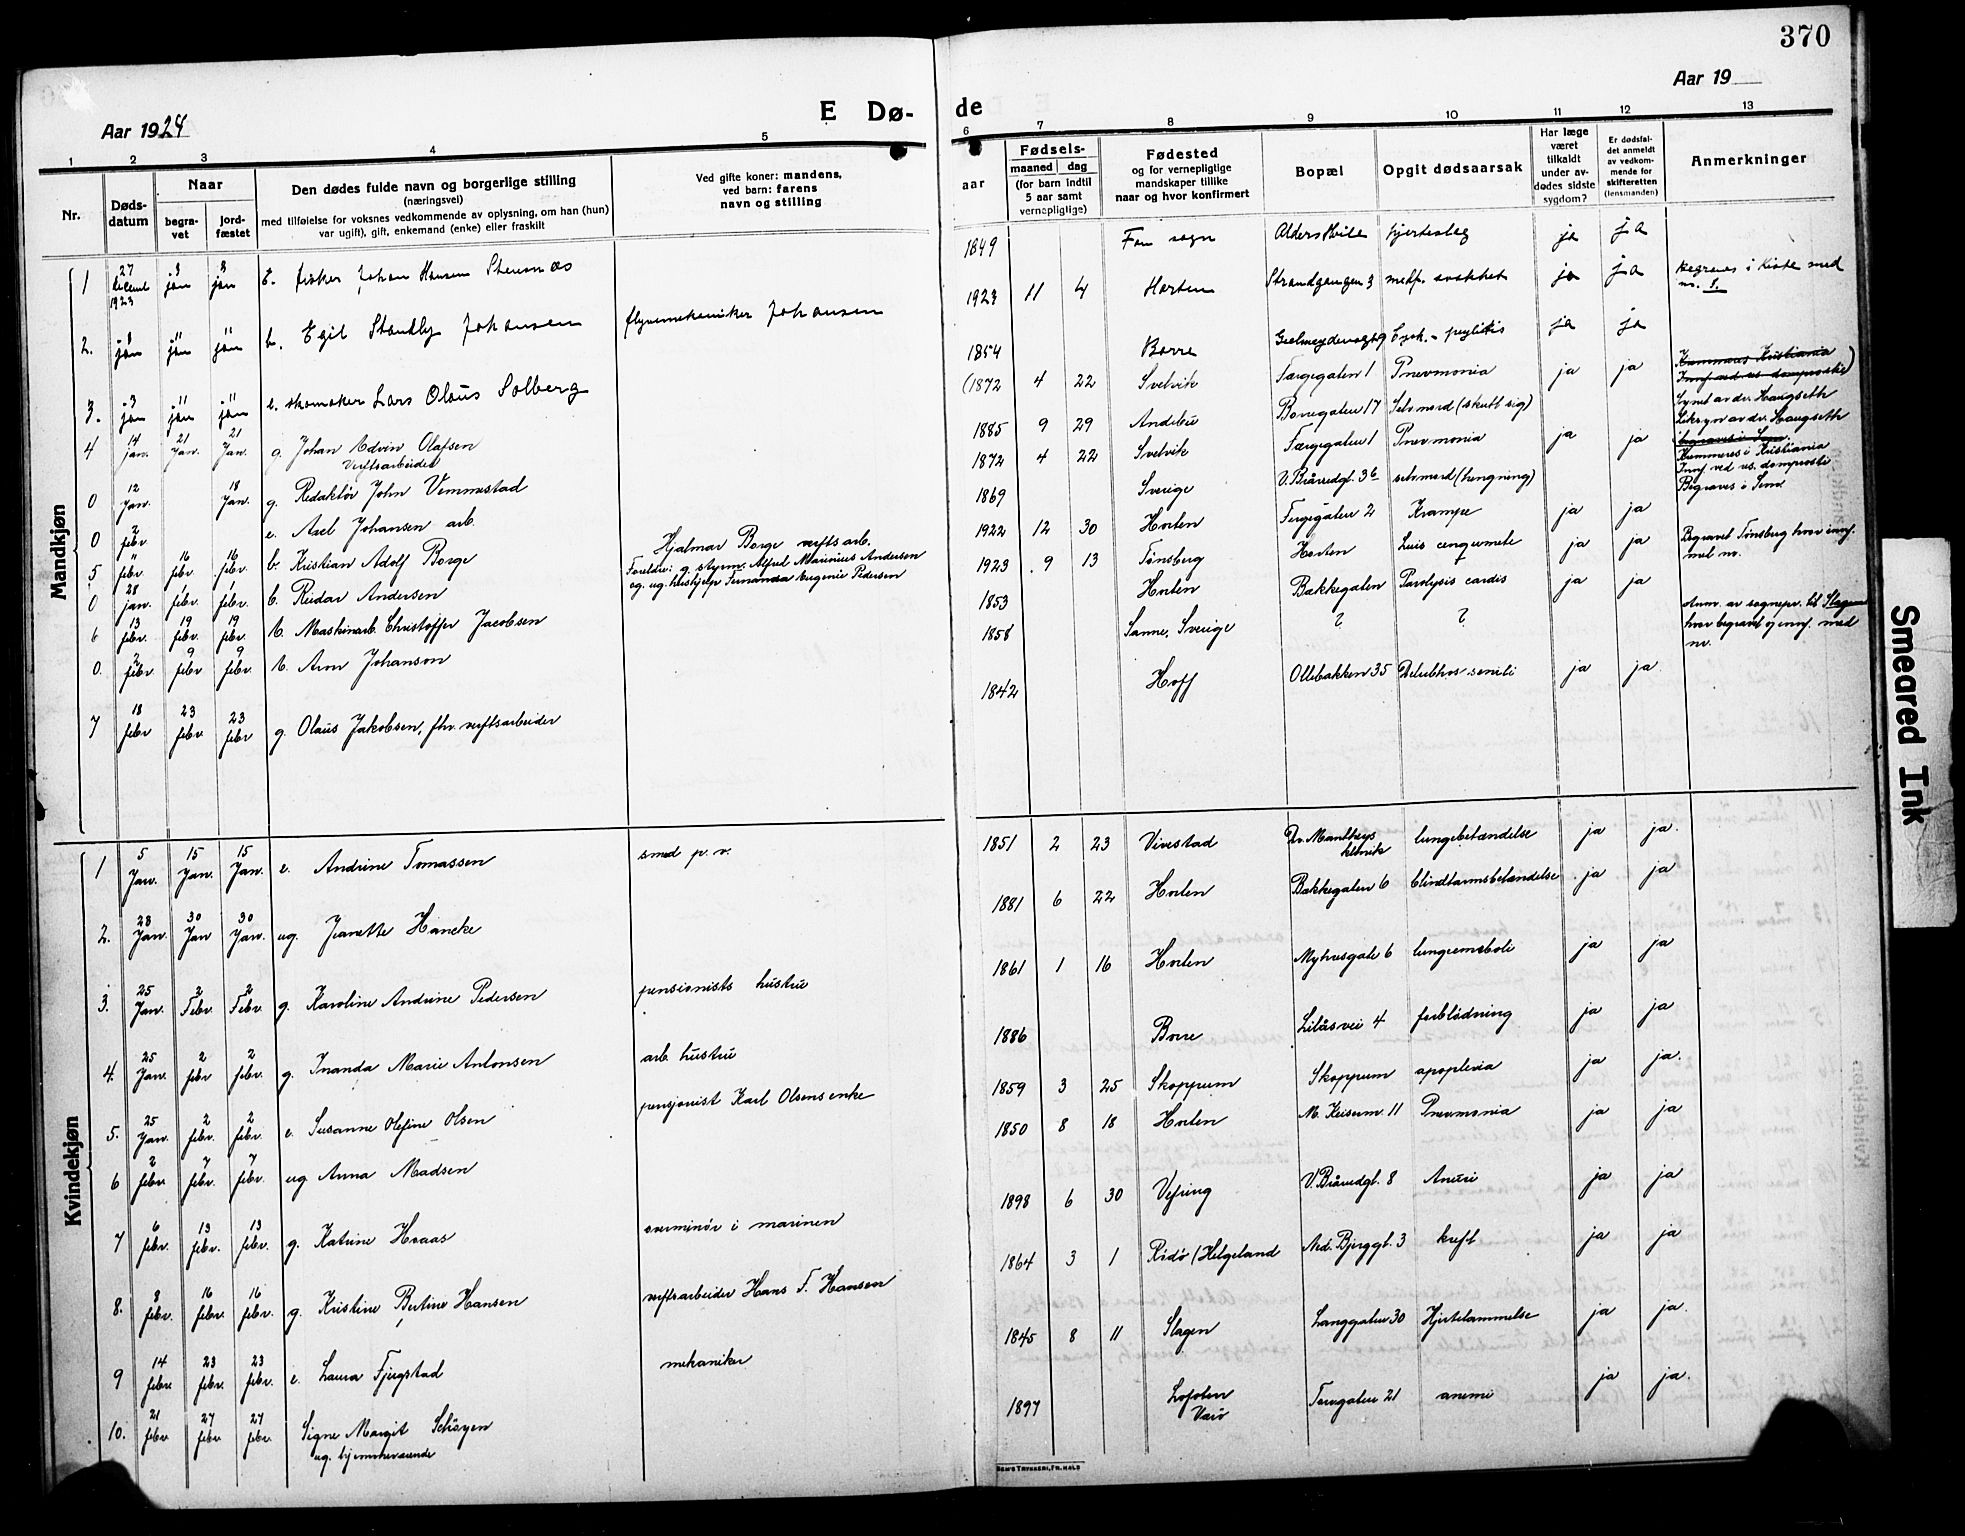 370
Aar 1924
E Dø-
de
Aar 19
1 2 3 4 5
6 7 8 9 10 11 12 13
Nr.
Døds-
datum
Naar
begra-
vet
jord-
fæstet
Den dødes fulde navn og borgerlige stilling
(næringsvei)
med tilføielse for voksnes vedkommende av oplysning, om han (hun)
var ugift), gift, enkemand (enke) eller fraskilt
Ved gifte koner: mandens,
ved barn: farens
navn og stilling
aar
Fødsels-
maaned dag
(for barn indtil
5 aar samt
vernepligtige)
Fødested
og for vernepligtige
mandskaper tillike
naar og hvor konfirmert
Bopæl
Opgit dødsaarsak
Har læge
været
tilkaldt
under av-
dødes sidste
sygdom?
Er dødsfal-
det anmeldt
av vedkom-
mende for
skifteretten
(lensmanden)
Anmerkninger
Mandkjøn
1 27 1923 3 jan 8 jan E. fisker Johan Hansen 1849 sogn Aldershvile hjerteslag ja ja
2. 8 jan 11 jan 11 jan b. Egil Johansen flyvemekaniker Johansen 1923 11 4 Horten Strandgangen 3 medf. svakhet ja ja begraves i kiste med
nr. 1.
3. 3 jan 11 jan 11 jan e. skomaker Lars Olaus Solberg 1854 Borre ja ja
4 14 jan. 21 Jan. 21 Jan. g. Johan Edvin Olafsen
Verftsarbeider
(1872 4 22 Svelvik Færgegaten 1 Pnevmonia ja ja
0 12 Jan. 18 Jan. g. Redaktør John Vemmestad 1885 9 29 Andebu Borregaten 17 Selvmord (skutt sig) Synet av dr. Haugseth
1872 4 22 Svelvik Færgegaten 1 Pnevmonia ja ja
0 2 febr e. Axel Johansen arb. 1869 Sverige selvmord (hengning)
Begraves i Sem
5 11 febr. 16 febr 16 febr. b. Kristian Adolf Borge Hjalmar Borge verftsarb. 1922 12 30 Horten Fergegaten 2 Krampe ja ja
0 28 jan. 1 febr. 1 febr. b. Reidar Andersen Foreldre: g. styrm. Alfred Marinius Andersen
og ug. hushjelp Eugenie Pedersen
1923 9 13 Tønsberg Horten ja ja Begravet Tønsberg hvor innf.
med nr.
6 13 febr. 19 febr. 19 febr. b. Maskinarb. Christoffer Jacobsen 1853 Horten Bakkegaten Paralysis cardis ja ja
0. 2 febr 9 febr 9 febr. b. Aron Johanson 1858 Sanne, Sverige ? ? Anm. av sognepr. til Slagen
hvor begravet og innf. med
nr.
7 18 febr 23 febr. 23 febr g. Olaus Jakobsen, fhv. verftsarbeider 1842 Hoff Ollebakken 35 ja ja
Kvindekjøn
1 5 Jan. 15 Jan. 15 Jan. e. Andrine Tomassen smed p. v. 1851 2 23 Vivestad klinik lungebetændelse ja ja.
2. 28 Jan. 30 Jan 30 Jan. ug. Jeanette Hancke 1881 6 22 Horten Bakkegaten 6 blindtarmsbetændelse ja ja
3. 25 Jan. 2 Febr. 2 Febr. g. Karoline Andrine Pedersen pensionists hustru 1861 1 16 Horten Myhrsgate 6 lungeemboli ja ja
4. 25 Jan. 2 febr 2 febr. g. Inanda Marie Antonsen arb. hustru 1886 Borre Lilásvei 4 forblødning ja ja
5. 25 Jan. 2 febr. 2 febr. e. Susanne Olefine Olsen pensjonist Karl Olsens enke 1859 3 25 Skoppum Skoppum apoplexia ja ja.
6 2 febr. 7 febr. 7 febr. ug Anna Madsen 1850 8 18 Horten M. Keiserm. 11 Pnevmonia ja ja
7 6 febr. 13 febr. 13 febr. g. Katrine Hraas overminør i marinen 1898 6 30 Vefring V. Bråvedgt. 8 ja ja
8. 8 febr. 16 febr. 16 febr. g. Kristine Bertine Hansen verftsarbeider Hans F. Hansen 1864 3 1 Rødø (Helgeland Ned. Bjerggt. 3 kreft ja ja
9 14 febr. 23 febr. 23 febr. e. Laura Fjugstad mekaniker 1845 8 11 Slagen Langgaten 30 Hjertelammelse ja ja.
10. 21 febr. 27 febr. 27 febr. Signe Margit Schøyen
ug. hjemmeværende
1897 Lofoten
Torvgaten 21 anemi ja ja.
Smeared Ink